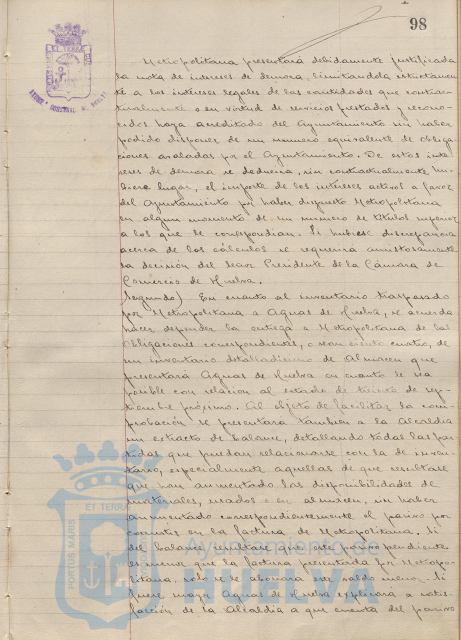 98
Metropolitana presentará debidamente justificada
la nota de intereses de demora, limitandola estrictamen
te a los intereses legales de las cantidades que contrac-
tualmente o en virtud de servicios prestados y recono-
cidos haya acreditado del Ayuntamiento sin haber
podido disponer de un numero equivalente de obliga-
ciones avaladas por el Ayuntamiento. De estos inte
reses de demora se deduciria, si contractualmente hu-
biere lugar, el importe de los intereses activos a favor
del Ayuntamiento por haber dispuesto Metropolitana
en algun momento de un numero de titulos superior
a los que le correspondian. Si hubiese discrepancia
acerca de los cálculos se requerirá amistosamente
la decisión del Señor Presidente de la Cámara de
Comercio de Huelva.
Segundo) En cuanto al inventario traspasado
por Metropolitana a Aguas de Huelva, se acuerda
hacer depender la entrega a Metropolitana de las
obligaciones correspondientes, o sean ciento cuatro, de
un inventario detalladisimo de Almacen que
presentará Aguas de Huelva en cuanto le sea
posible con relación al estado de treinta de sep-
tiembre próximo. Al objeto de facilitar la com-
probación se presentara tambien a la Alcaldia
un extracto de balance, detallando todas las par-
tidas que puedan relacionarse con la de inven-
tario, especialmente aquellas de que resultare
que han aumentado las disponibilidades de
materiales, usados o en almacen, sin haber
aumentado correspondientemente el pasivo por
cuentas en la factura de Metropolitana. Si
del balance resultare que este pasivo pendiente
es menor que la factura presentada por Metropo-
litana, solo se le abonará este saldo menor. Si
fuere mayor Aguas de Huelva explicará a satis-
facción de la Alcaldia a que cuenta del pasivo
ET TERRA
PORTUS MARIS
Ayuntamiento de
HUELVA